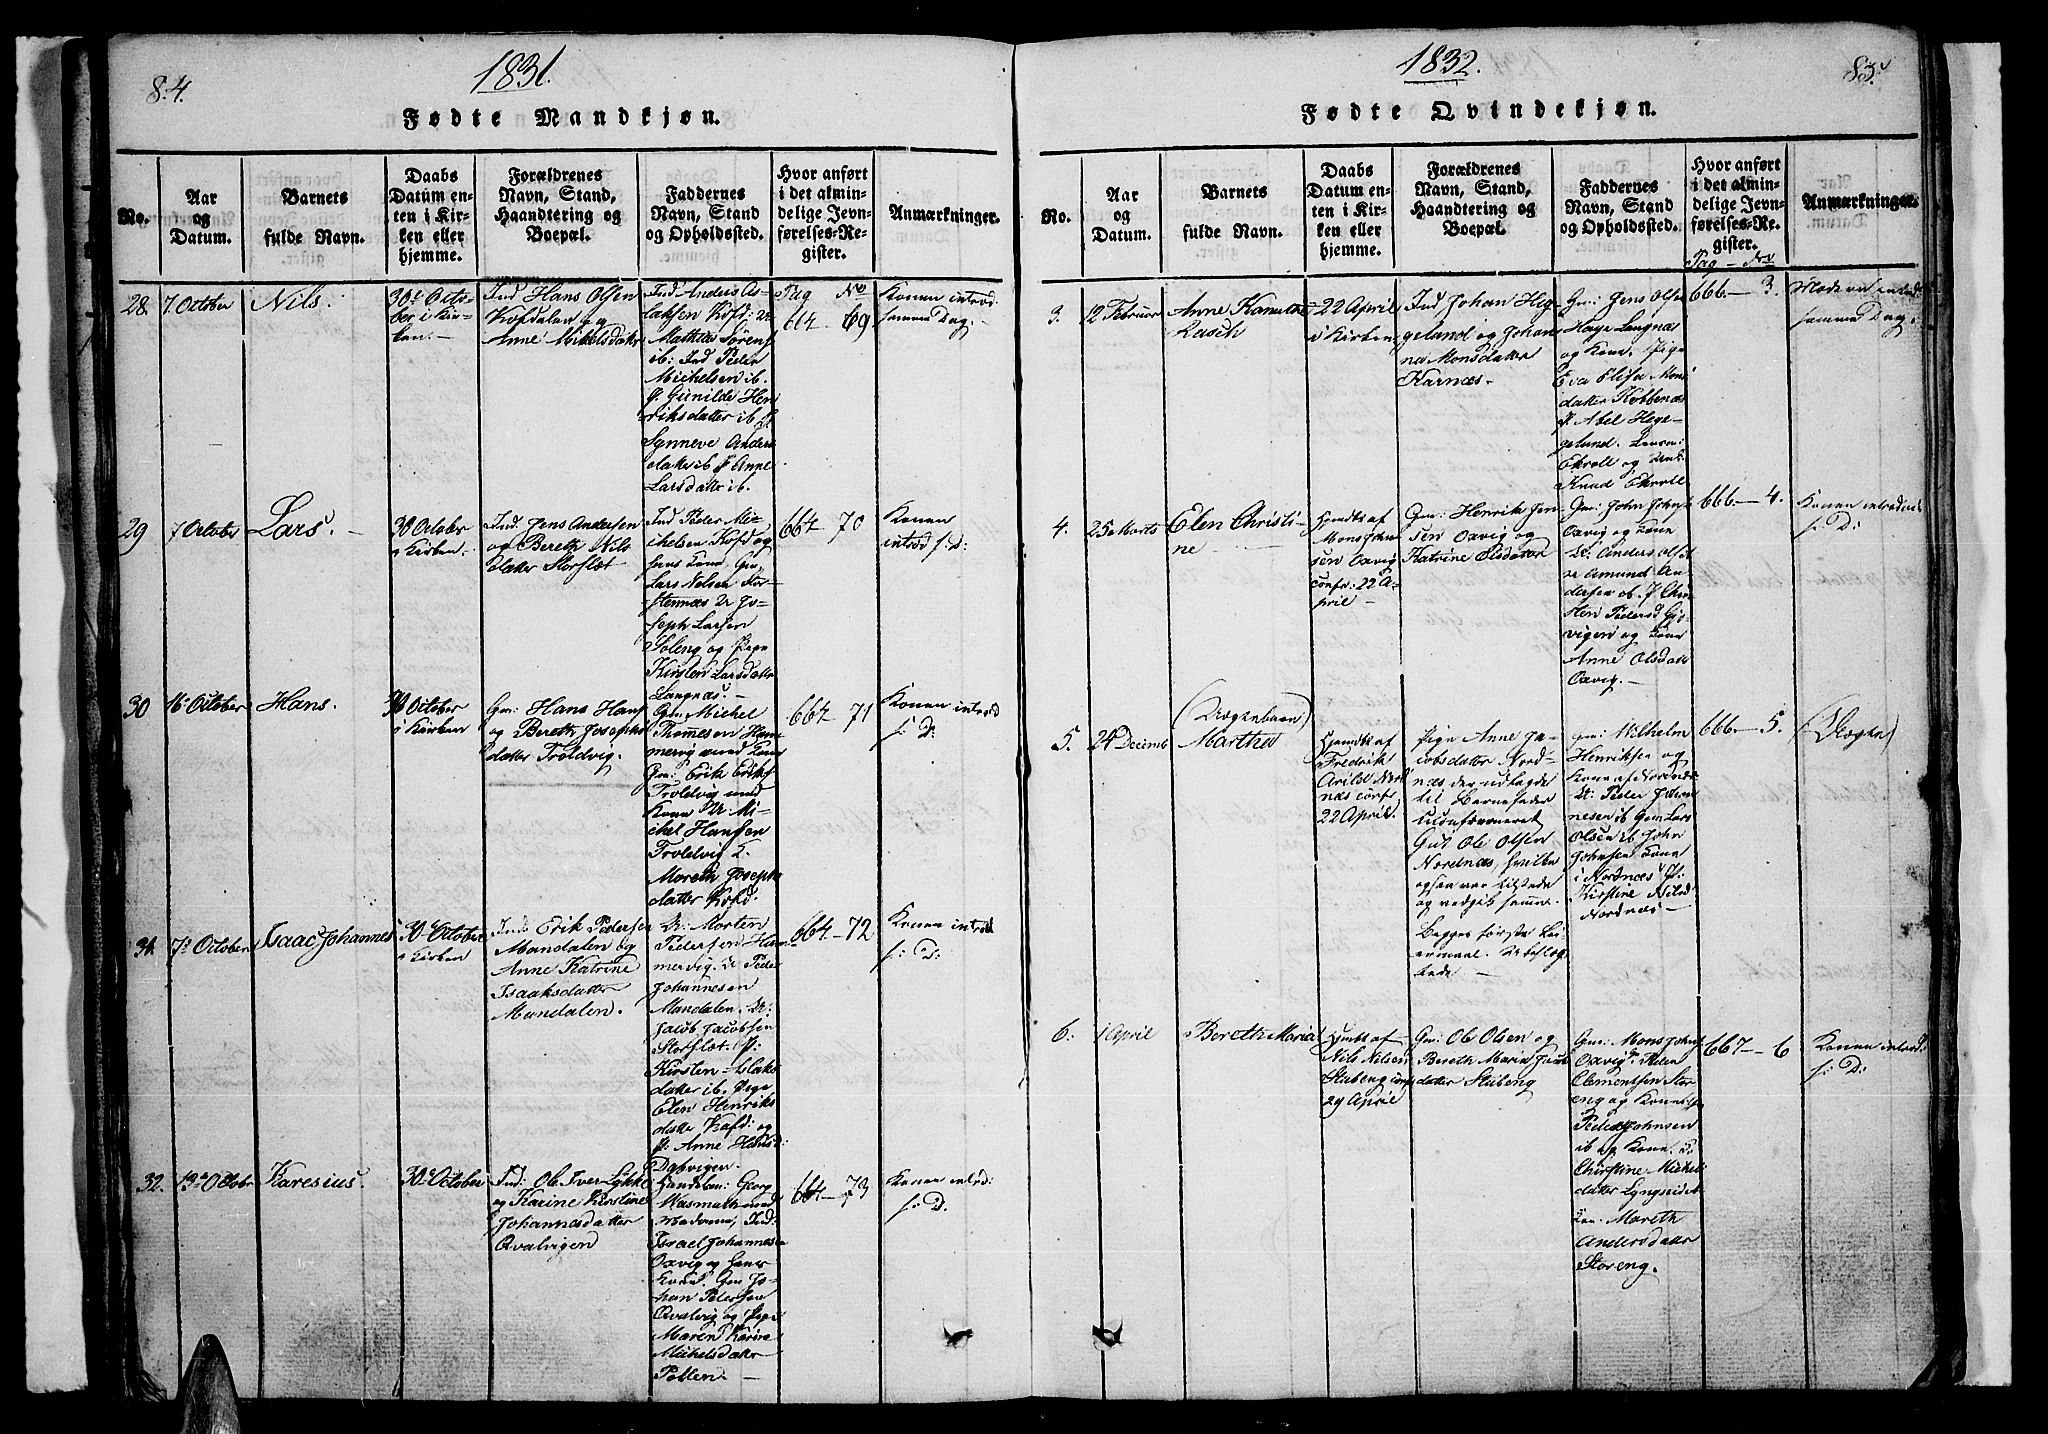 84.
1831.
Fødte Mandkjøn.
No.
Aar
og
Datum.
Barnets
fulde Navn.
Daabs
Datum en-
ten i Kir-
ken eller
hjemme.
Forældrenes
Navn, Stand,
Haandtering og
Boepæl.
Faddernes
Navn, Stand
og Opholdssted.
Hvor anført
i det almin-
delige Jevn-
førelses-Re-
gister.
Anmærkninger.
28.
7. October
Nils.
30te Octo-
ber i Kir-
ken.
Ind Hans Olsen
Kofdalen og
Anne Mikelsdatter
Ind Anders As-
laksen Kofd:
Mathias Sørens
ib: Ind Peder
Michelsen ib.
P. Gunilde Hen
riksdatter ib. P.
Synneve Anders
datter ib P Anne
Larsdatter ib.
Pag No
664. 69
Konen introd
samme Dag.
29
7 October
Lars.
30 October
i Kirken.
Ind Jens Andersen
og Bereth Nils
datter Storslet
Ind Peder Mi-
chelsen Kofd og
hans Kone, Gm.
Lars Nelsen Stor-
stennæs Jo-
seph Larsen
Soleng og Pige
Kirsten Larsdatter
Langnæs.
664 70
Konen
introd s: D:
30
16 October
Hans.
30 October
i Kirken
Gm: Hans Hans
og Bereth Josephs
datter Troldvig.
Gm: Michel
Thomesen Ham
mervig med Kone
Gm: Erik Eriks
Troldvig med
Kone Mi-
chel Hansen
Troldvig
Mareth Josephs
datter Kofd.
664 71
Konen introd
s: D:
31.
7. October
Isaac Johannes
30 October
i Kirken
Ind Erik Pedersen
Mandalen og
Anne Katrine
Isaaksdatter
Mandalen.
Morten
Pedersen Ham
mervig. Peder
Johannesen
Mandalen.
Jacob Jacobsen
Storslet. P:
Kirsten Aslaks
datter ib. Pige
Elen Henriks
datter Kofd: og
P: Anne Hansd:
Dalvigen.
664 - 72
Konen introd
s: D:
32.
13 Octobr
Karesius.
30 October
Ind: Ole Iver Lykke
og Karine Kirstine
Johannesdatter
Qvalvigen
Handelsm: Georg
Wasmuth med
Madame, Ind:
Israel Johannesen
Oxvig og hans
Kone. Gm Jo-
han Pedersen
Qvalvig og Pige
Maren Karine
Michelsdatter
Pollen.
664 - 73
Konen introd:
s: D.
1832.
85.
Fødte Qvindekjøn.
No.
Aar
og
Datum.
Barnets
fulde Navn.
Daabs
Datum en-
ten i Kir-
ken eller
hjemme.
Forældrenes
Navn, Stand,
Haandtering og
Boepæl.
Faddernes
Navn, Stand
og Opholdssted.
Hvor anført
i det almin-
delige Jevn-
førelses-Re-
gister.
Pag - No
Anmærkninger.
3.
12 Februar
Anne
22 April
i Kirken
Ind Johan Heg-
geland og Johan
na Monsdatter
Karnæs.
Gm: Jens Olsen
Hage Langnæs
og Kone. Pige
Eva Elisa Mons
datter Kobbenæs
P. Abel Hege-
geland.
Ekroll og
Knud Ekroll
666 - 3.
Moderen introd
samme Dag:
4.
25 Marts
Elen Christi-
ne
Hjemdøbt af
Mons John
sen Oxvig
confr: 22 A-
pril
Gm: Henrik Jen
sen Oxvig og
Katrine Olsdatter
Gm: John Johns
Oxvig og Kone
Anders Olsen
Amund An
dersen ib. P
Pedersd Gjø
vigen og Kone
Anne Olsdatter
Oxvig.
666 - 4.
Konen introd
s: D:
5.
24 Decemb
(Uægtebarn)
Martha
Hjemdøbt af
Fredrik
Arild Nord
næs confr
22 April.
Pige Anne Ja-
cobsdatter Nord-
næs der udlagde
til Barnefader
Gut Ole Olsen
Nordnæs, hvilken
ogsaa var tilstede
og vedgik samme.
Begges første Lei-
ermaal.
Gm: Wilhelm
Henriksen og
Kone af Nordnæs
Peder Johan
nesen ib Gm: Lars
Olsen ib John
Johnsen Kone
i Nordnæs P:
Kirstine Nilsd
Nordnæs
666. - 5.
(Uægte)
6.
1 April
Bereth Maria
Hjemdøbt af
Nils Nilsen
Stubeng confr
29 April
Gm: Ole Olsen og
Bereth Maria
datter Stubeng
Gm: Mons Johns
Oxvig
Clementsen Stor
eng og Kone
Peder Johnsen
ib og Kone.
Christine Michels
datter Lyngseidet
Mareth
Andersdatter
Storeng.
667 - 6
Konen introd:
s: D: